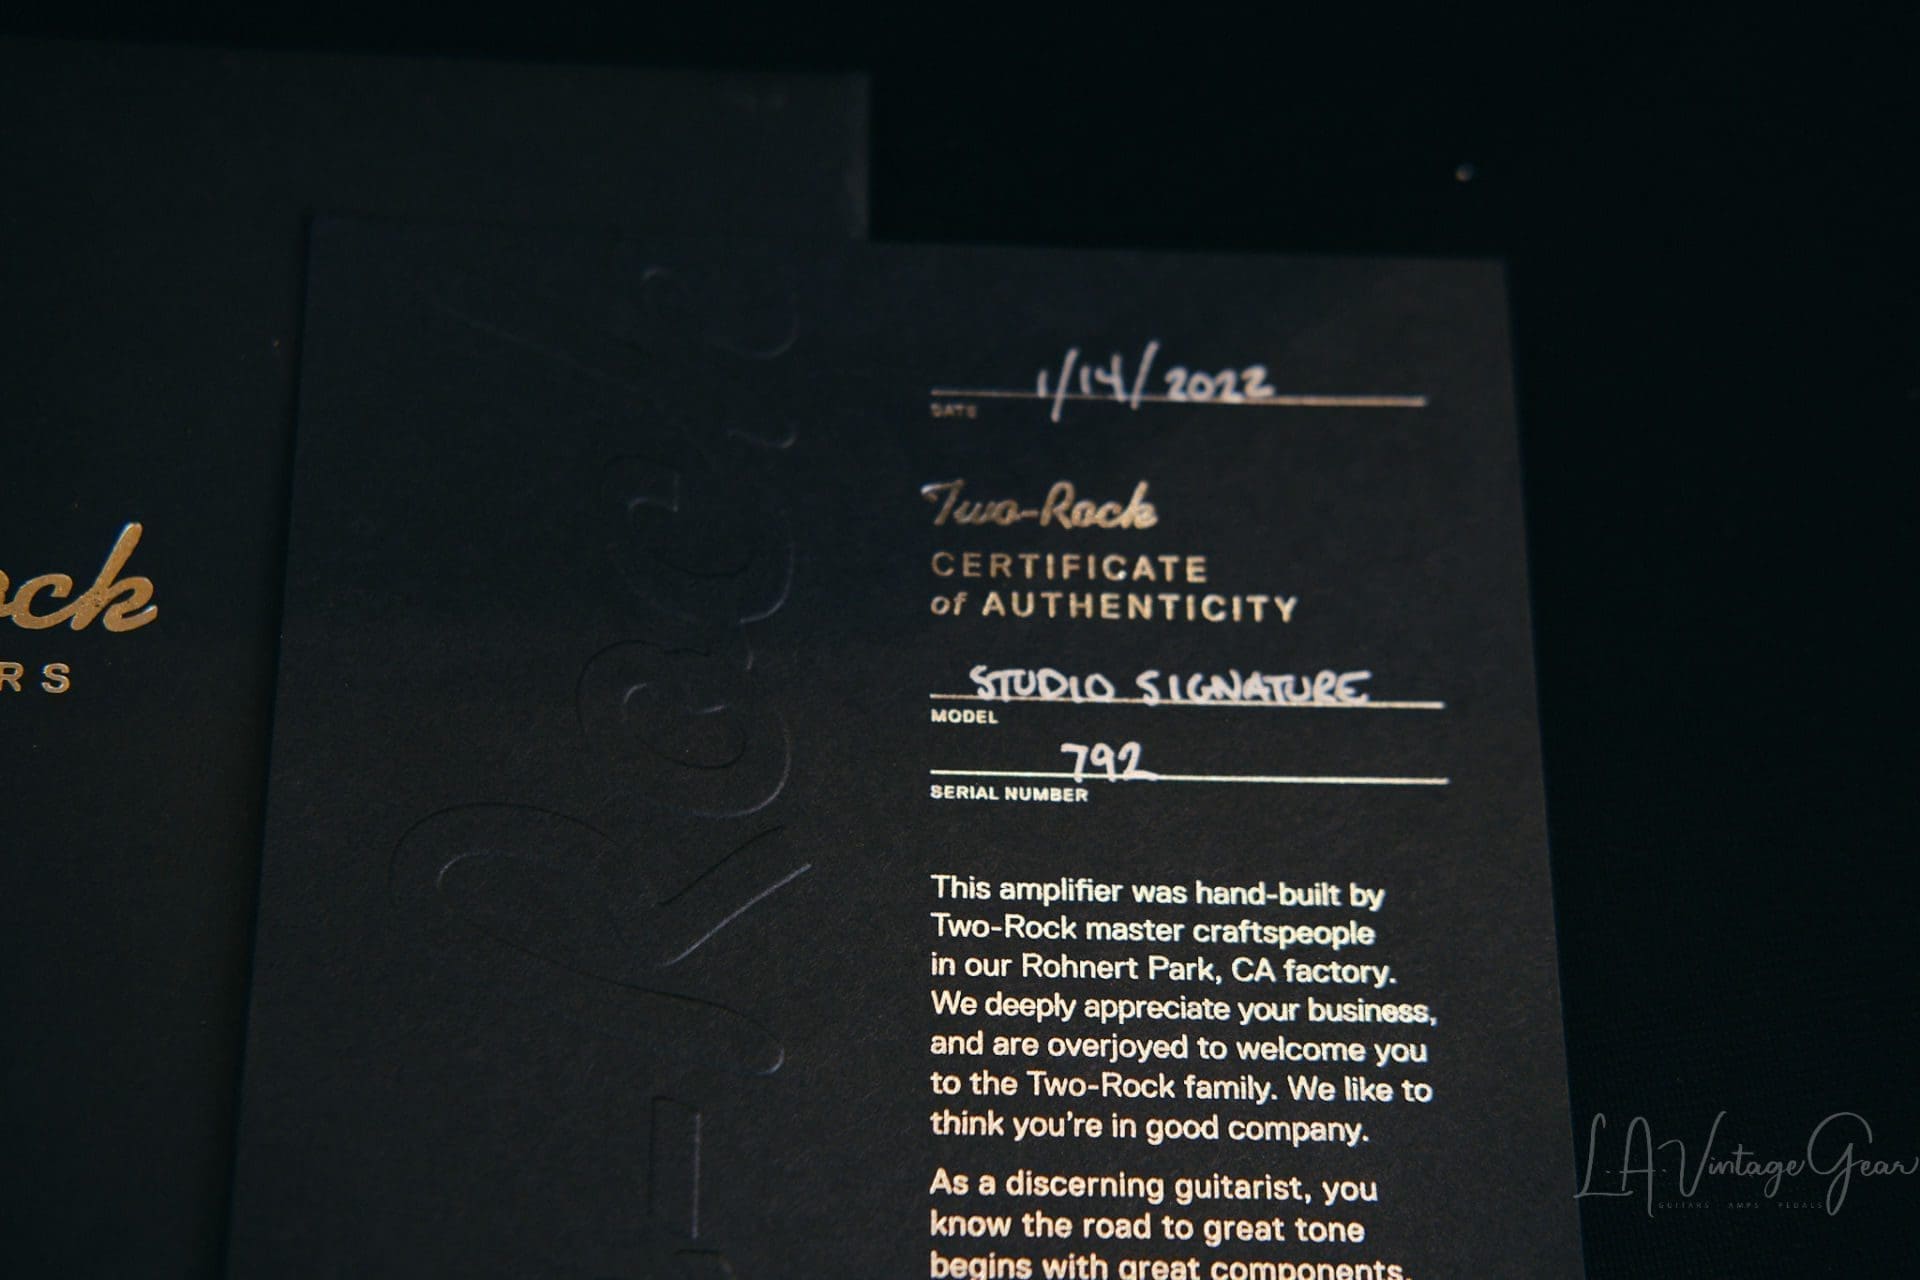 1/14/2022
DATE
Two-Rock
CERTIFICATE
of AUTHENTICITY
STUDIO SIGNATURE
MODEL
792
SERIAL NUMBER
This amplifier was hand-built by
Two-Rock master craftspeople
in our Rohnert Park, CA factory.
We deeply appreciate your business,
and are overjoyed to welcome you
to the Two-Rock family. We like to
think you're in good company.
As a discerning guitarist, you
know the road to great tone
begins with great components.
ock
RS
Rock
L.A. Vintage Gear
GUITARS AMPS PEDALS